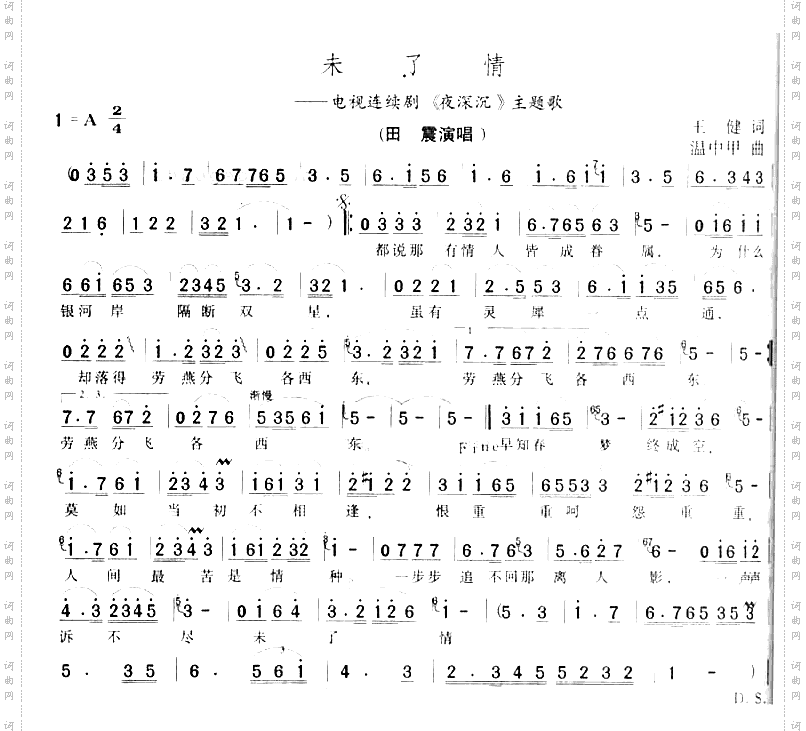 未了情
——电视连续剧《夜深沉》主题歌
1=A 2/4
(田 震演唱)
王 健 词
温中甲 曲
(0 3 5 3 | 1 . 7 | 6 7 7 6 5 | 3 . 5 | 6 . 1 5 6 | 1 . 6 | 1 . 6 1 1 | 3 . 5 | 6 . 3 4 3
2 1 6 | 1 2 2 | 3 2 1 . | 1 - ) 0 3 3 3 2 3 2 1 | 6 . 7 6 5 6 3 | 5 - | 0 1 6 1 1
都说那 有情人 皆成眷属， 为什么
6 6 1 6 5 3 | 2 3 4 5 3 . 2 | 3 2 1 . | 0 2 2 1 | 2 . 5 5 3 | 6 . 1 1 3 5 | 6 5 6 .
银河岸 隔断双星， 虽有灵犀一点通，
0 2 2 2 | 1 . 2 3 2 3 | 0 2 2 5 | 3 . 2 3 2 1 | 7 . 7 6 7 2 | 2 7 6 6 7 6 | 5 - | 5 -
却落得 劳燕分飞各西东， 劳燕分飞各西东，
2. 3. 渐慢
7 . 7 6 7 2 | 0 2 7 6 | 5 3 5 6 1 | 5 - | 5 - | 5 - 3 1 1 6 5 | 3 - | 2 1 2 3 6 | 5 -
劳燕分飞各西东。 Fine 早知春梦终成空，
1 . 7 6 1 | 2 3 4 3 | 1 6 1 3 1 | 2 1 2 2 | 3 1 1 6 5 | 6 5 5 3 3 | 2 1 2 3 6 | 5 -
莫如当初不相逢， 恨重重呵怨重重，
1 . 7 6 1 | 2 3 4 3 | 1 6 1 2 3 2 | 1 - | 0 7 7 7 | 6 . 7 6 5 | 5 . 6 2 7 | 6 - | 0 1 6 1 2
人间最苦是情种， 一步步追不回那离人影， 一声声
4 . 3 2 3 4 5 | 3 - | 0 1 6 4 | 3 . 2 1 2 6 | 1 - | (5 . 3 | 1 . 7 | 6 . 7 6 5 3 5 3
诉不尽未了情
5 . 3 5 | 6 . 5 6 1 | 4 . 3 | 2 . 3 4 5 | 5 2 3 2 | 1 - )
D.S.